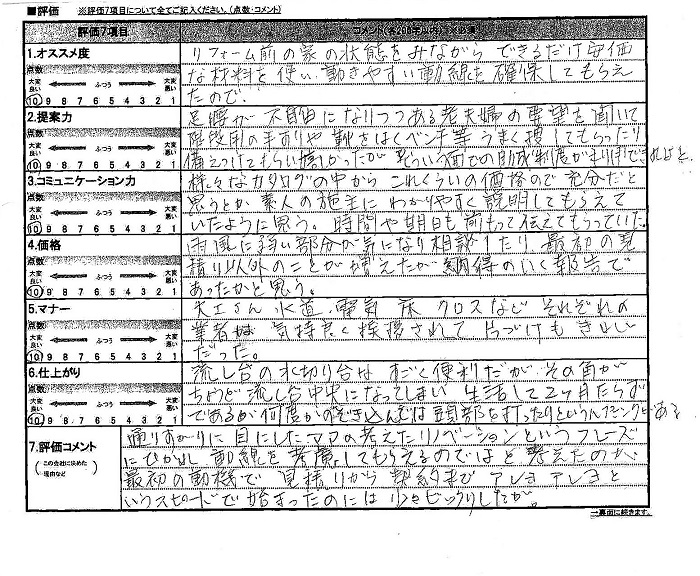 ■評価 ※評価7項目について全てご記入ください。（点数・コメント）
評価7項目
1.オススメ度
リフォーム前の家の状態をみながら できるだけ安価
な材料を使い 動きやすい動線を確保してもらえ
たので、
点数
大変良い ふつう 大変悪い
10 9 8 7 6 5 4 3 2 1
2.提案力
足腰が不自由になりつつある老夫婦の要望を聞いて
階段用の手すりや靴をはくベンチ等うまく捜してもらったり
備えつけてもらい嬉しかったが
点数
大変良い ふつう 大変悪い
10 9 8 7 6 5 4 3 2 1
3.コミュニケーション力
様々なカタログの中から これくらいの価格ので充分だと
思うとか 素人の施主に わかりやすく説明してもらえて
いたように思う。時間や期日も前もって伝えてもらっていた。
点数
大変良い ふつう 大変悪い
10 9 8 7 6 5 4 3 2 1
4.価格
雨風に弱い部分が気になり相談したり 最初の見
積り以外のことが増えたが 納得のいく報告で
あったかと思う。
点数
大変良い ふつう 大変悪い
10 9 8 7 6 5 4 3 2 1
5.マナー
大工さん 水道、電気 床 クロスなど それぞれの
業者は 気持良く挨拶されて 片づけも きれい
だった。
点数
大変良い ふつう 大変悪い
10 9 8 7 6 5 4 3 2 1
6.仕上がり
流し台の水切り台は すごく便利だが その角が
ちょうど 流し台中央になってしまい 生活して2ヶ月たらず
であるが何度か のぞき込んでは 頭部を打ったりという
点数
大変良い ふつう 大変悪い
10 9 8 7 6 5 4 3 2 1
7.評価コメント
（この会社に決めた理由など）
通りすがりに目にしたママの考えたリノベーションというフレーズ
にひかれ 動線を考慮してもらえるのではと考えたのが
最初の動機で 見積りから契約まで アレヨ アレヨと
いうスピードで始まったのには 少々ビックリしたが。
→裏面に続きます。